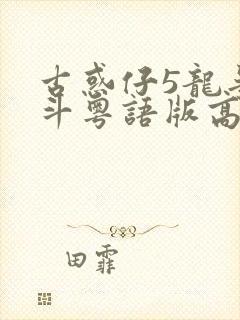 古惑仔5龍
斗粵語版高
田霏